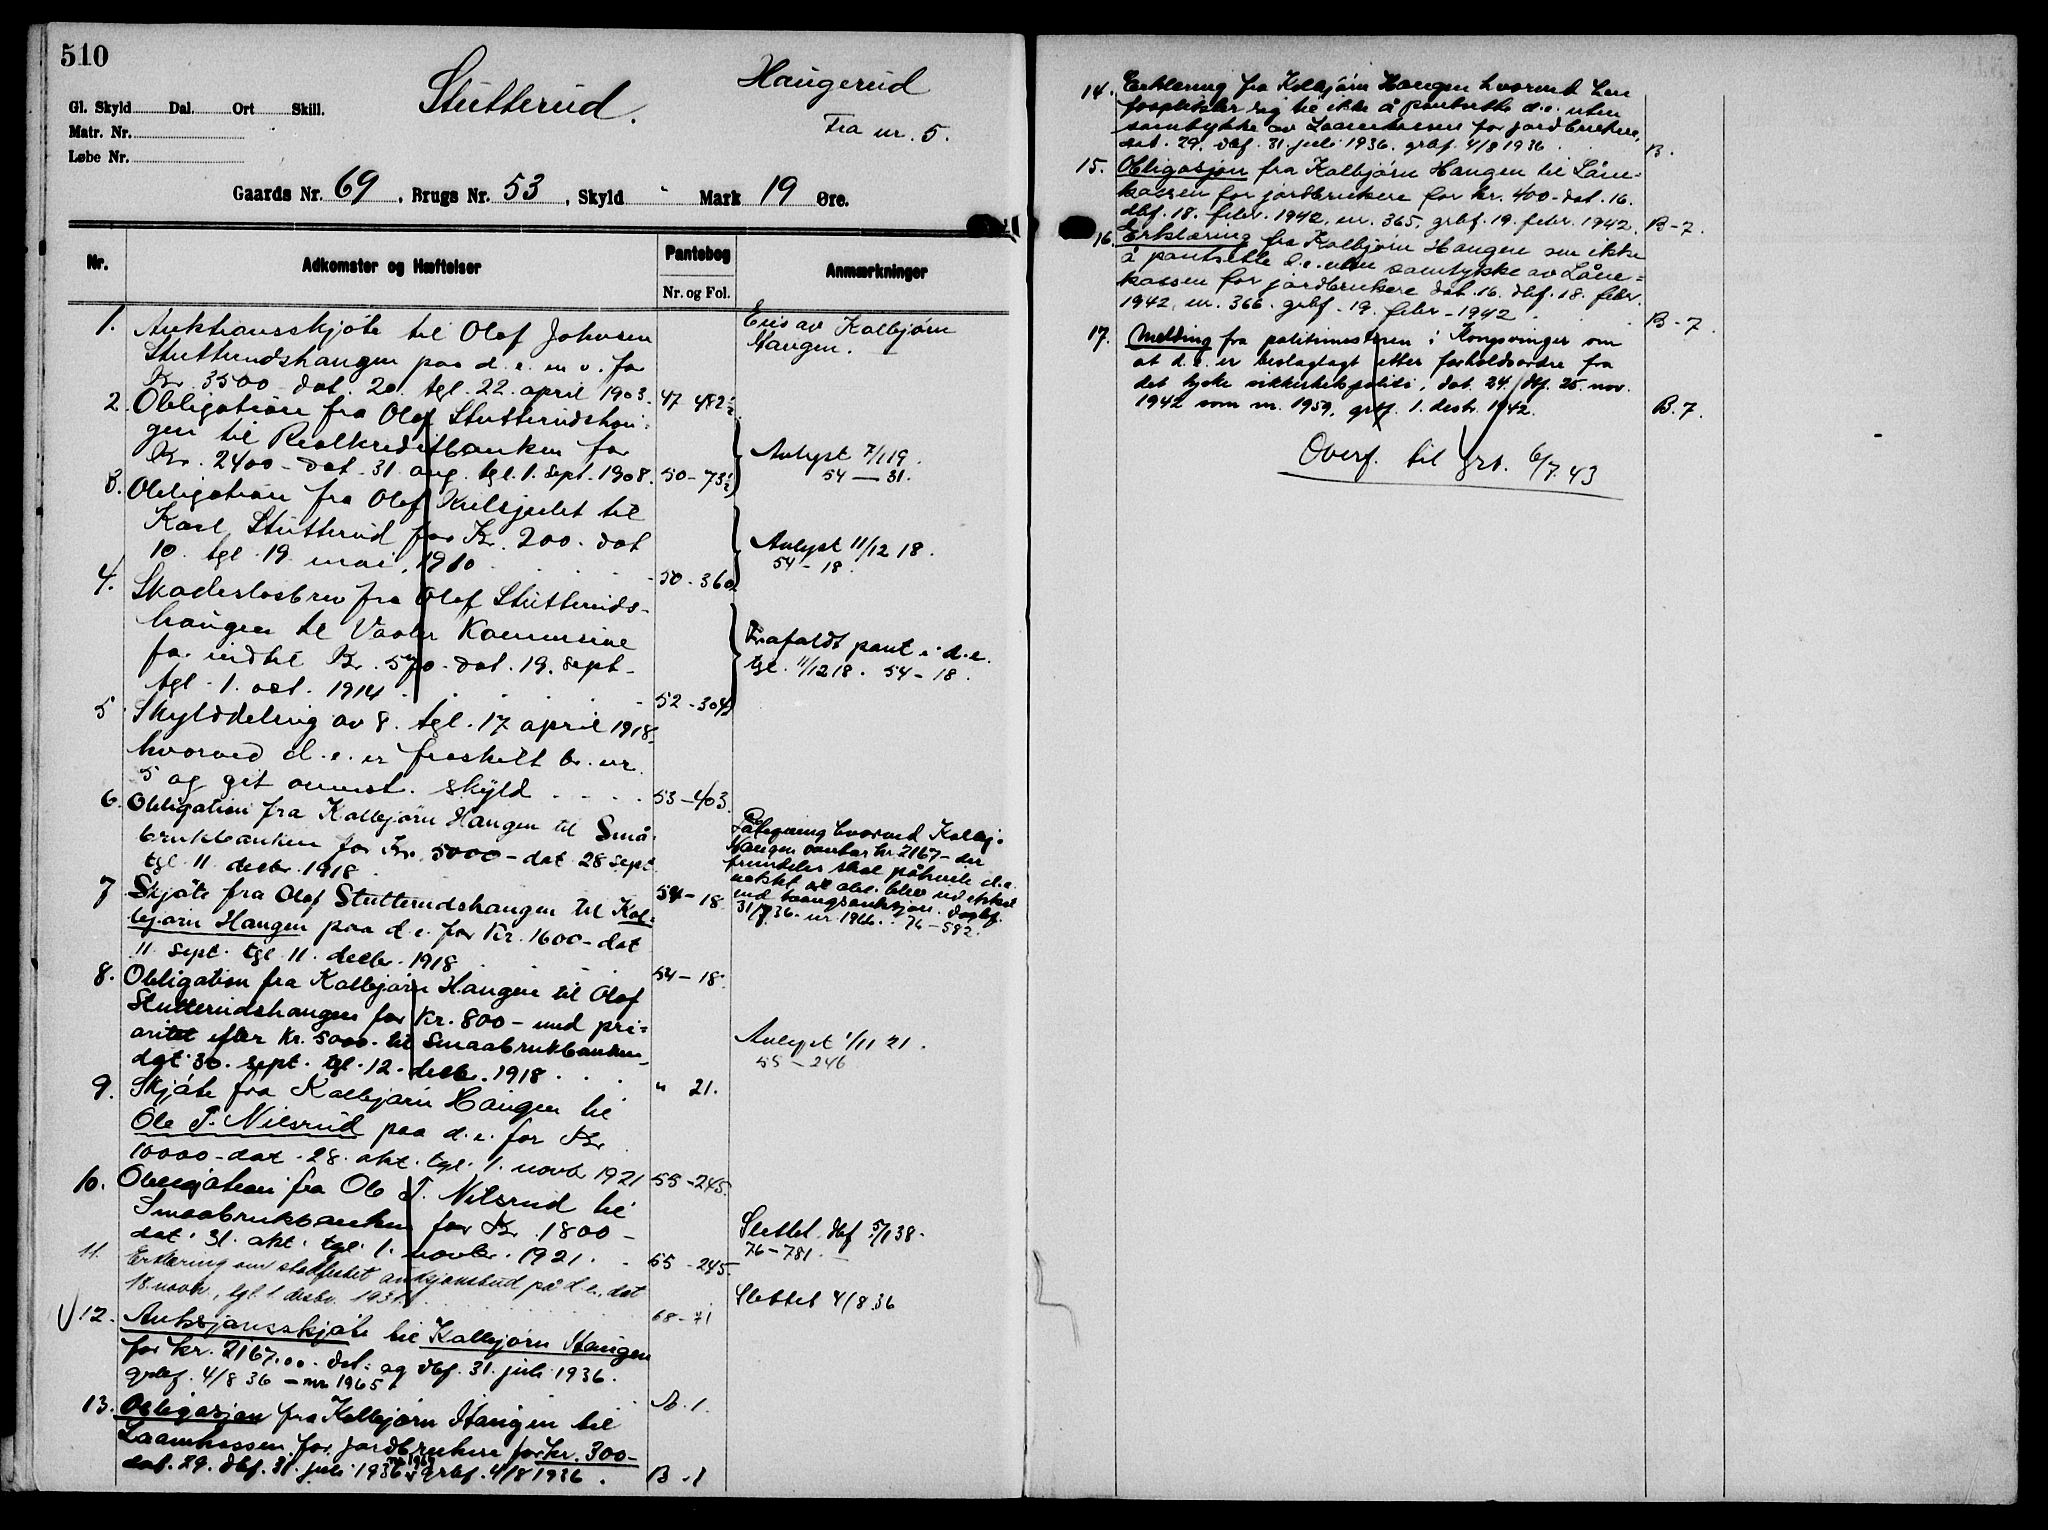 510
Stutterud.
Haugerud
Fra nr. 5.
Gl. Skyld Dal. Ort Skill.
Matr. Nr.
Løbe Nr.
Gaards Nr. 69, Brugs Nr. 53, Skyld " Mark 19 Øre.
Nr.
Adkomster og Hæftelser
Pantebog
Nr. og Fol.
Anmærkninger
1. Auktionsskjøte til Olof Johnsen
Stutterudshaugen paa d. e. m. v. for
Kr. 3500 - dat. 20. tgl. 22. april 1903. 47-482½
Eies av Kolbjørn
Haugen.
2. Obligation fra Olof Stutterudshau-
gen til Realkreditbanken for
Kr. 2400 - dat. 31. aug. tgl. 1. sept. 1908. 50-73½
Avlyst 7/1 19.
54 - 31.
3. Obligation fra Olof Kilsjulet til
Karl Stutterud for Kr. 200 - dat
10. tgl. 19. mai 1910 50-360
Avlyst 11/12 18.
54 - 18.
4. Skadesløsbrev fra Olof Stutteruds-
haugen til Vaaler Kommune
for indtil Kr. 570 - dat. 19. sept.
tgl. 1. oct. 1914. 52-304
Frafaldt pant i d. e.
tgl. 11/12 18. 54 - 18.
5. Skylddeling av 8. tgl. 17 april 1918
hvorved d. e. er fraskilt br. nr.
5 og git anmst. skyld 53-403.
6. Obligation fra Kolbjørn Haugen til Små-
brukbanken for Kr. 5000 - dat 28 sept.
tgl. 11. decbr. 1918. 54-18
Påtegning hvorved Kolbj.
Haugen vedtar kr. 2167 - der
fremdeles skal påhvile d. e.
uaktet at obl. blev udelukket
ved tvangsauksjon. dagbf.
31/7 36. nr. 1966. 76-592.
7. Skjøte fra Olof Stutterudshaugen til Kol-
bjørn Haugen paa d. e. for Kr. 1600 - dat
11. sept. tgl. 11. decbr. 1918 54-18.
8. Obligation fra Kolbjørn Haugen til Olof
Stutterudshaugen for Kr. 800 - med pri-
oritet efter Kr. 5000 - til Smaabrukbanken -
dat. 30. sept. tgl. 12. decbr. 1918. " 21.
Avlyst 1/11 21.
55 - 246
9. Skjøte fra Kolbjørn Haugen til
Ole T. Nilsrud paa d. e. for Kr
10000 - dat. 28. okt. tgl. 1. novb 1921 55-245.
10. Obligation fra Ole T. Nilsrud til
Smaabrukbanken for Kr. 1800 -
dat. 31. okt. tgl. 1. novbr. 1921. 55-245.
Slettet dbf 5/1 38.
76-781.
11. Erklæring om stadfestet auksjonsbud på d. e., dat
18. novbr., tgl. 1. desbr. 1931. 68-71
Slettet 4/8 36
12. Auksjonsskjøte til Kolbjørn Haugen
for kr. 2167.00. dat. og dbf. 31. juli 1936.
grbf. 4/8 36 - nr 1965. A. 1.
13. Obligasjon fra Kolbjørn Haugen til
Laanekassen for Jordbrukere for kr. 300 -
dat. 29. dbf. 31. juli 1936 grbf. 4/8 1936. B-1
14. Erklæring fra Kolbjørn Haugen hvorved han
forplikter sig til ikke å pantsette d. e. uten
samtykke av Laanekassen for jordbrukere,
dat. 29. dbf. 31. juli 1936. grbf. 4/8 1936. B.
15. Obligasjon fra Kolbjørn Haugen til Låne-
kassen for jordbrukere for kr. 400 - dat. 16.
dbf. 18. febr. 1942. nr. 365. grbf. 19. febr. 1942. B-7.
16. Erklæring fra Kolbjørn Haugen om ikke
å pantsette d. e. uten samtykke av Låne-
kassen for jordbrukere dat. 16. dbf. 18. febr.
1942 nr. 366. grbf. 19. febr. 1942. B-7.
17. Melding fra politimesteren i Kongsvinger om
at d. e. er beslaglagt etter forholdsordre fra
det tyske sikkerhetspoliti, dat. 24./dbf. 25. nov.
1942 som nr. 1959, grbf. 1. desbr. 1942. B.7.
Overf. til grb. 6/7 43